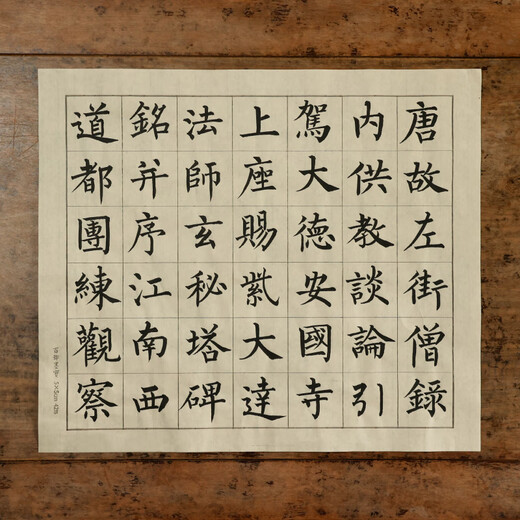 唐故左街僧錄
內供教談論引
駕大德安國寺
上座賜紫大達
法師玄秘塔碑
銘并序江南西
道都團練觀察